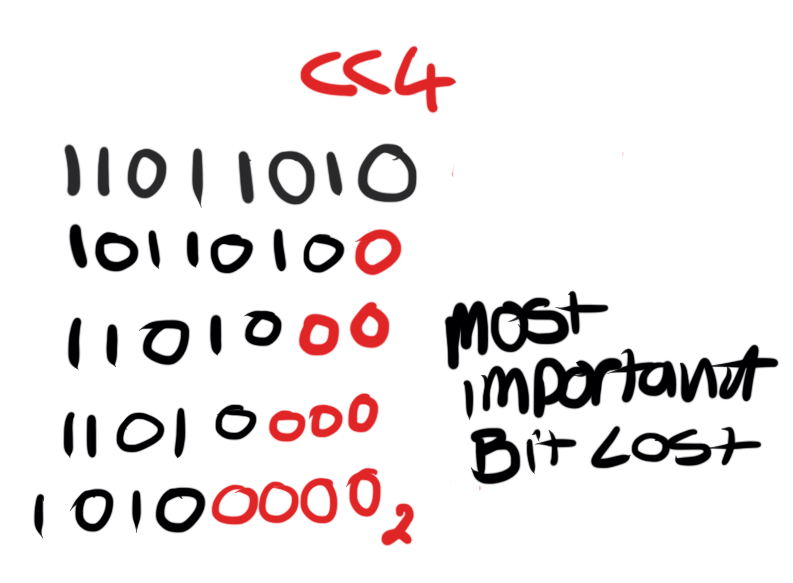 <<4
11011010
10110100
1101000
11010000
10100000₂
most
important
Bit Lost